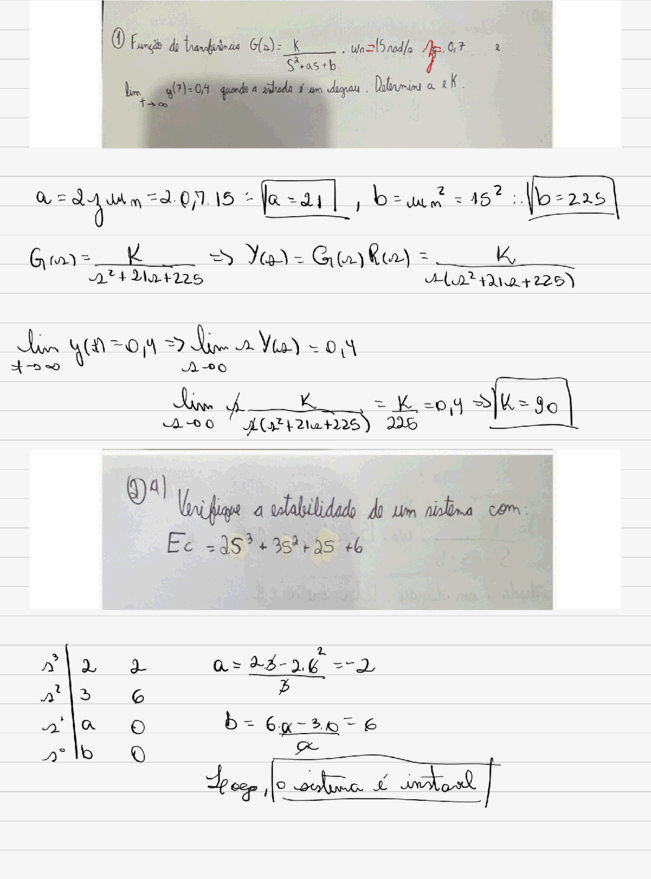 ① Função de transferência G(s) = K / (S² + as + b) . ωn = 15 rad/s ζ = 0,7 e
lim t→∞ y(7) = 0,4 quando a entrada é um degrau. Determine a e K.
a = 2ζωn = 2.0,7.15 ∴ a = 21 , b = ωn² = 15² ∴ b = 225
G(s) = K / (s² + 21s + 225) => Y(s) = G(s)R(s) = K / (s(s² + 21s + 225))
lim t→∞ y(t) = 0,4 => lim s→0 s Y(s) = 0,4
lim s→0 s K / (s(s² + 21s + 225)) = K/225 = 0,4 => K = 90
② 4) Verifique a estabilidade de um sistema com:
Ec = 2S³ + 3S² + 2S + 6
s³ | 2 2 a = (2.3 - 2.6²) / 3 = -2
s² | 3 6
s¹ | a 0 b = (6.a - 3.0) / a = 6
s⁰ | b 0
Logo, o sistema é instavel